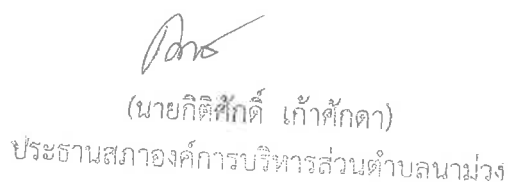 (นายกิติศักดิ์ เก้าศักดา)
ประธานสภาองค์การบริหารส่วนตำบลนาม่วง